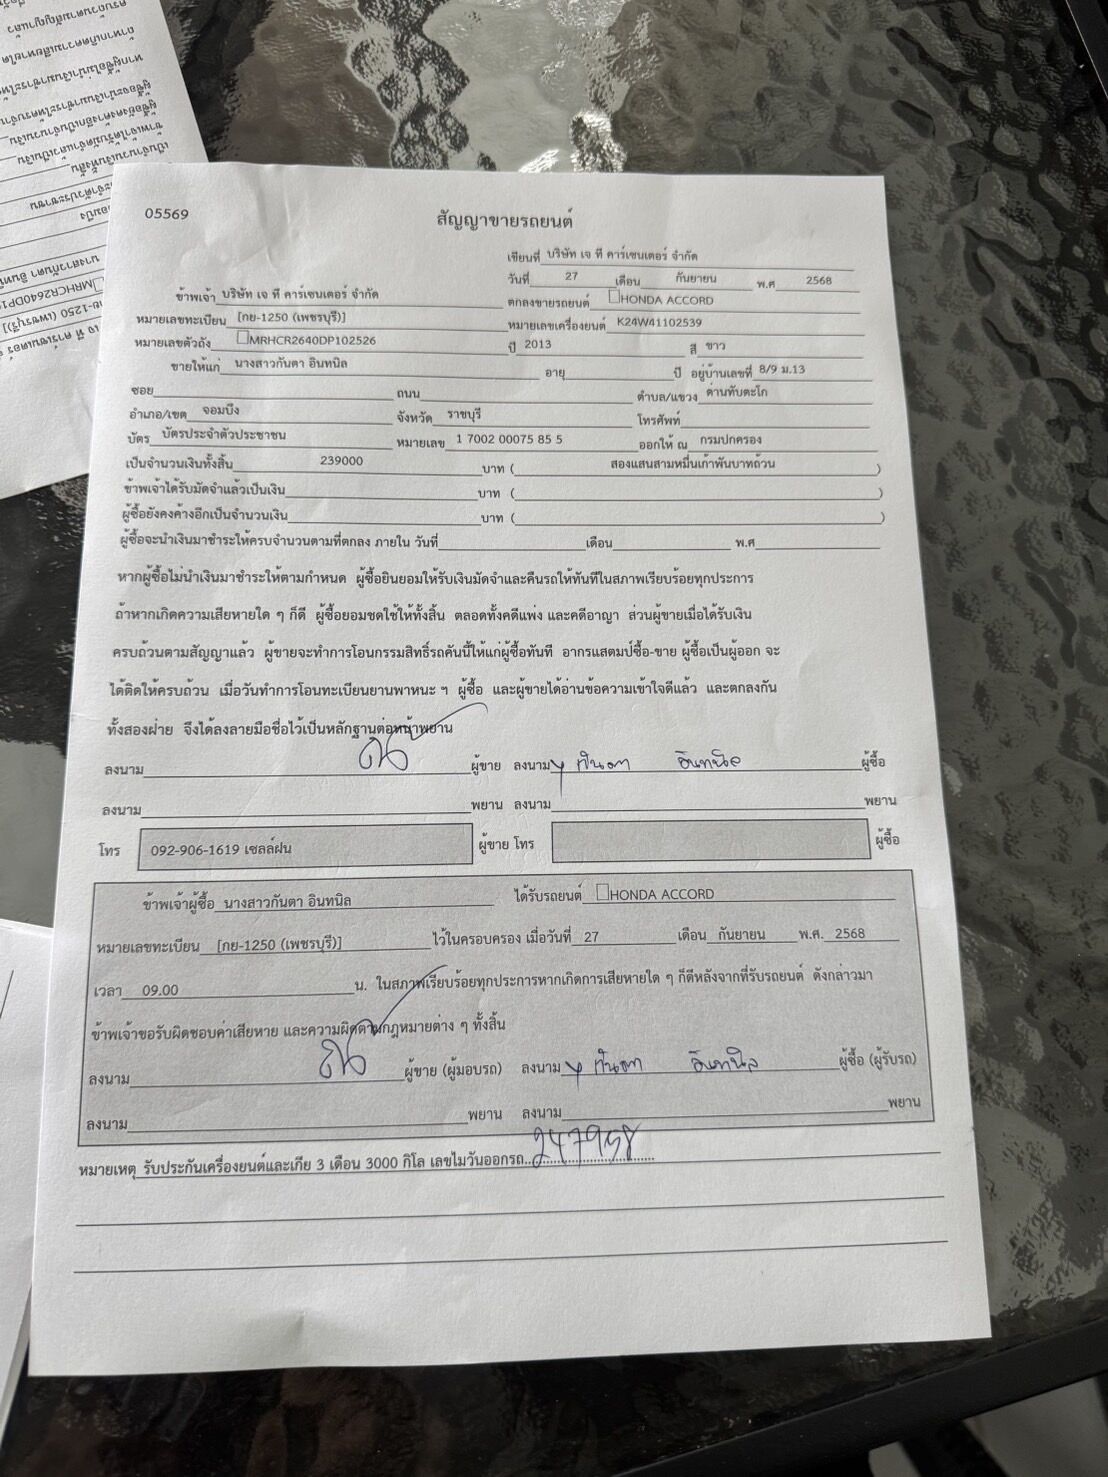 05569
สัญญาขายรถยนต์
เขียนที่ บริษัท เจ ที คาร์เซนเตอร์ จำกัด
วันที่ 27 เดือน กันยายน พ.ศ 2568
ข้าพเจ้า บริษัท เจ ที คาร์เซนเตอร์ จำกัด ตกลงขายรถยนต์ HONDA ACCORD
หมายเลขทะเบียน [กย-1250 (เพชรบุรี)] หมายเลขเครื่องยนต์ K24W41102539
หมายเลขตัวถัง MRHCR2640DP102526 ปี 2013 สี ขาว
ขายให้แก่ นางสาวกันตา อินทนิล อายุ ปี อยู่บ้านเลขที่ 8/9 ม.13
ซอย ถนน ตำบล/แขวง ด่านทับตะโก
อำเภอ/เขต จอมบึง จังหวัด ราชบุรี โทรศัพท์
บัตร บัตรประจำตัวประชาชน หมายเลข 1 7002 00075 85 5 ออกให้ ณ กรมปกครอง
เป็นจำนวนเงินทั้งสิ้น 239000 บาท ( สองแสนสามหมื่นเก้าพันบาทถ้วน )
ข้าพเจ้าได้รับมัดจำแล้วเป็นเงิน บาท ( )
ผู้ซื้อยังคงค้างอีกเป็นจำนวนเงิน บาท ( )
ผู้ซื้อจะนำเงินมาชำระให้ครบจำนวนตามที่ตกลง ภายใน วันที่ เดือน พ.ศ
หากผู้ซื้อไม่นำเงินมาชำระให้ตามกำหนด ผู้ซื้อยินยอมให้รับเงินมัดจำและคืนรถให้ทันทีในสภาพเรียบร้อยทุกประการ
ถ้าหากเกิดความเสียหายใด ๆ ก็ดี ผู้ซื้อยอมชดใช้ให้ทั้งสิ้น ตลอดทั้งคดีแพ่ง และคดีอาญา ส่วนผู้ขายเมื่อได้รับเงิน
ครบถ้วนตามสัญญาแล้ว ผู้ขายจะทำการโอนกรรมสิทธิ์รถคันนี้ให้แก่ผู้ซื้อทันที อากรแสตมป์ซื้อ-ขาย ผู้ซื้อเป็นผู้ออก จะ
ได้ติดให้ครบถ้วน เมื่อวันทำการโอนทะเบียนยานพาหนะ ฯ ผู้ซื้อ และผู้ขายได้อ่านข้อความเข้าใจดีแล้ว และตกลงกัน
ทั้งสองฝ่าย จึงได้ลงลายมือชื่อไว้เป็นหลักฐานต่อหน้าพยาน
ลงนาม ผู้ขาย ลงนาม กันตา อินทนิล ผู้ซื้อ
ลงนาม พยาน ลงนาม พยาน
โทร 092-906-1619 เซลล์ฝน ผู้ขาย โทร ผู้ซื้อ
ข้าพเจ้าผู้ซื้อ นางสาวกันตา อินทนิล ได้รับรถยนต์ HONDA ACCORD
หมายเลขทะเบียน [กย-1250 (เพชรบุรี)] ไว้ในครอบครอง เมื่อวันที่ 27 เดือน กันยายน พ.ศ. 2568
เวลา 09.00 น. ในสภาพเรียบร้อยทุกประการหากเกิดการเสียหายใด ๆ ก็ดีหลังจากที่รับรถยนต์ ดังกล่าวมา
ข้าพเจ้าขอรับผิดชอบค่าเสียหาย และความผิดตามกฎหมายต่าง ๆ ทั้งสิ้น
ลงนาม ผู้ขาย (ผู้มอบรถ) ลงนาม กันตา อินทนิล ผู้ซื้อ (ผู้รับรถ)
ลงนาม พยาน ลงนาม พยาน
หมายเหตุ รับประกันเครื่องยนต์และเกีย 3 เดือน 3000 กิโล เลขไมวันออกรถ.. 247958